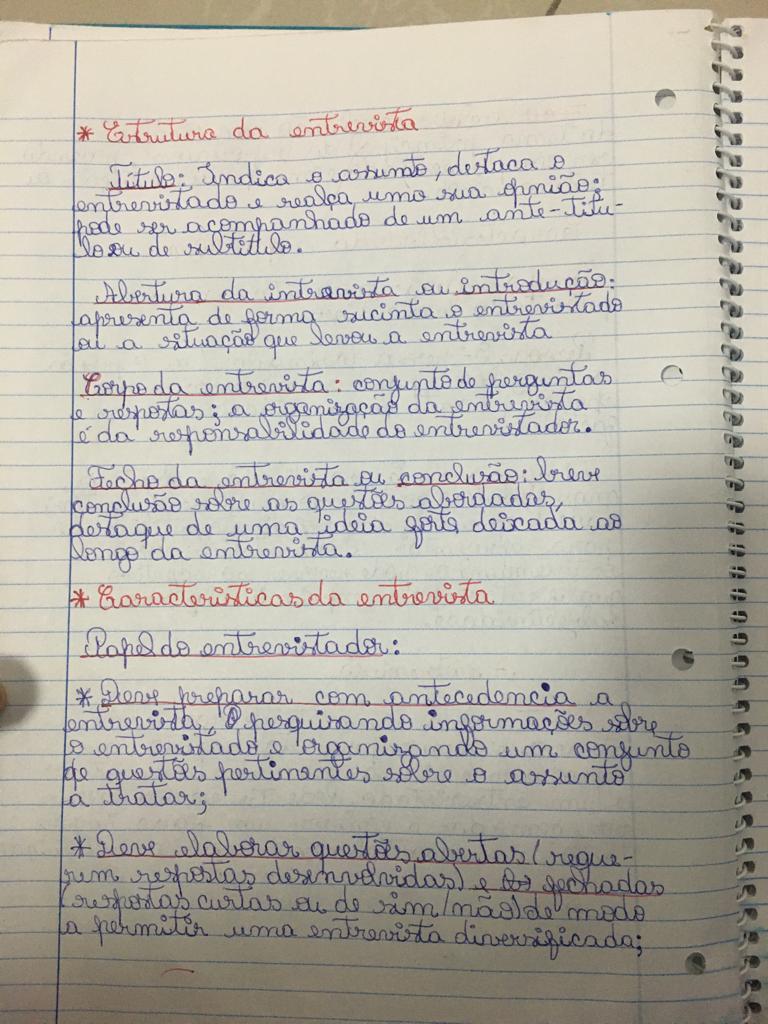 * Estrutura da entrevista
Título: Indica o assunto, destaca o
entrevistado e realça uma sua opnião;
pode ser acompanhado de um ante-titu-
lo ou de subtitulo.
Abertura da intrevista ou introdução:
apresenta de forma sucinta o entrevistado
ou a situação que levou a entrevista
Corpo da entrevista: conjunto de perguntas
e respostas; a organização da entrevista
é da responsabilidade do entrevistador.
Fecho da entrevista ou conclusão: breve
conclusão sobre as questões abordadas,
destaque de uma ideia forte deixada ao
longo da entrevista.
* Caracteristicas da entrevista
Papel do entrevistador:
* Deve preparar com antecedencia a
entrevista, pesquisando informações sobre
o entrevistado e organizando um conjunto
de questões pertinentes sobre o assunto
a tratar;
* Deve elaborar questões abertas (reque-
rem respostas desenvolvidas) e fechadas
(respostas curtas ou de sim/não) de modo
a permitir uma entrevista diversificada;